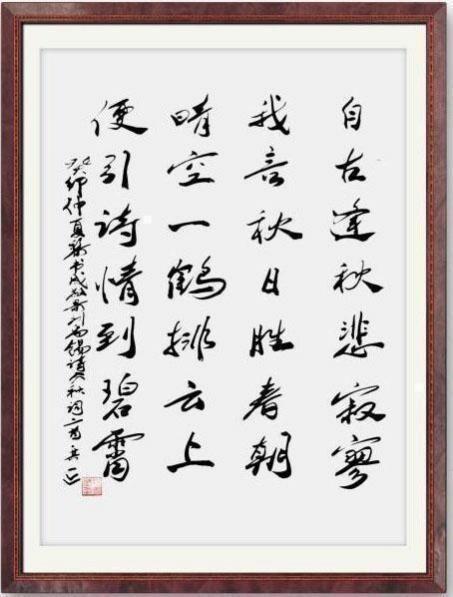 自古逢秋悲寂寥
我言秋日胜春朝
晴空一鹤排云上
便引诗情到碧霄
癸卯仲夏 书 刘禹锡诗秋词二首